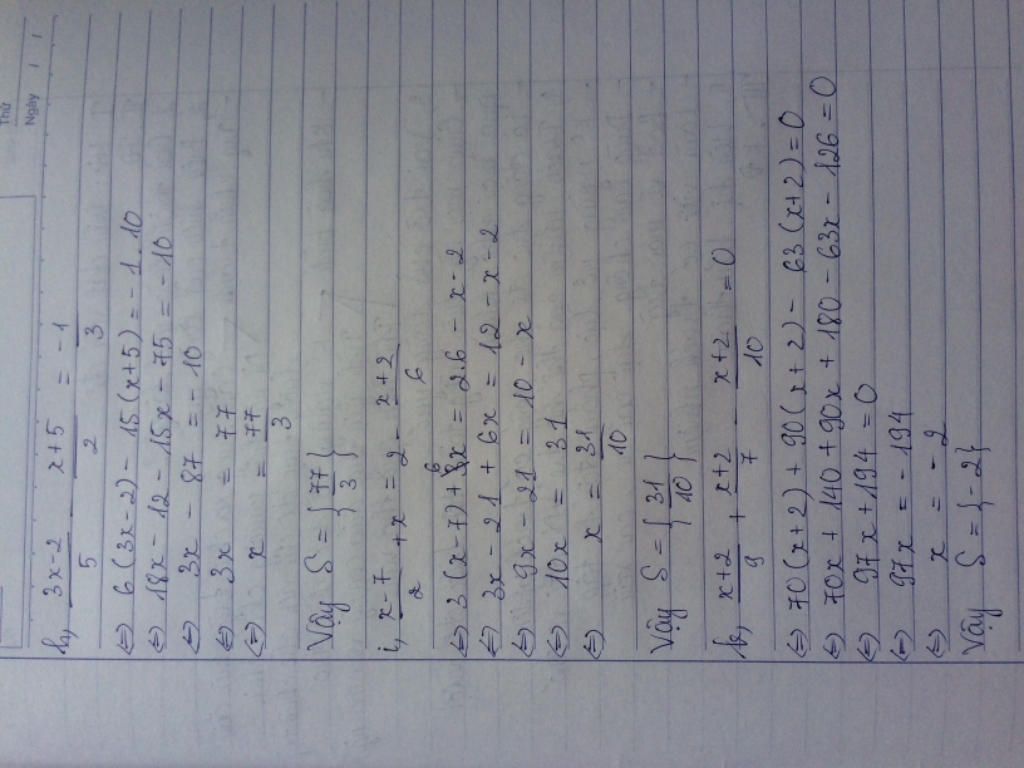 Thứ
Ngày
h, 3x-2/5 - x+5/2 = -1/3
⇔ 6(3x-2) - 15(x+5) = -1.10
⇔ 18x - 12 - 15x - 75 = -10
⇔ 3x - 87 = -10
⇔ 3x = 77
⇔ x = 77/3
Vậy S = {77/3}
i, x-7/2 + x = 2 - x+2/6
⇔ 3(x-7) + 6x = 2.6 - x - 2
⇔ 3x - 21 + 6x = 12 - x - 2
⇔ 9x - 21 = 10 - x
⇔ 10x = 31
⇔ x = 31/10
Vậy S = {31/10}
k, x+2/9 + x+2/7 - x+2/10 = 0
⇔ 70(x+2) + 90(x+2) - 63(x+2) = 0
⇔ 70x + 140 + 90x + 180 - 63x - 126 = 0
⇔ 97x + 194 = 0
⇔ 97x = -194
⇔ x = -2
Vậy S = {-2}